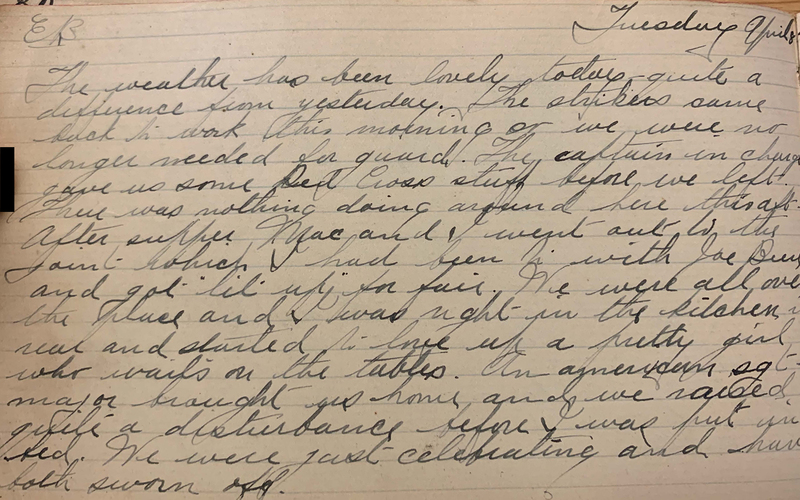 Tuesday April 8
The weather has been lovely today, quite a
difference from yesterday. The strikers came
back to work this morning so we were no
longer needed for guard. The captain in charge
gave us some Red Cross stuff before we left.
There was nothing doing around here this aft.
After supper, Mac and I went out to the
joint which I had been to with Joe
and got "lit up" for fair. We were all over
the place and I was right in the kitchen,
rear and started to love up a pretty girl
who waits on the tables. An american sgt-
major brought us home, and we raised
quite a disturbance before I was put in
bed. We were just celebrating and have
both sworn off.